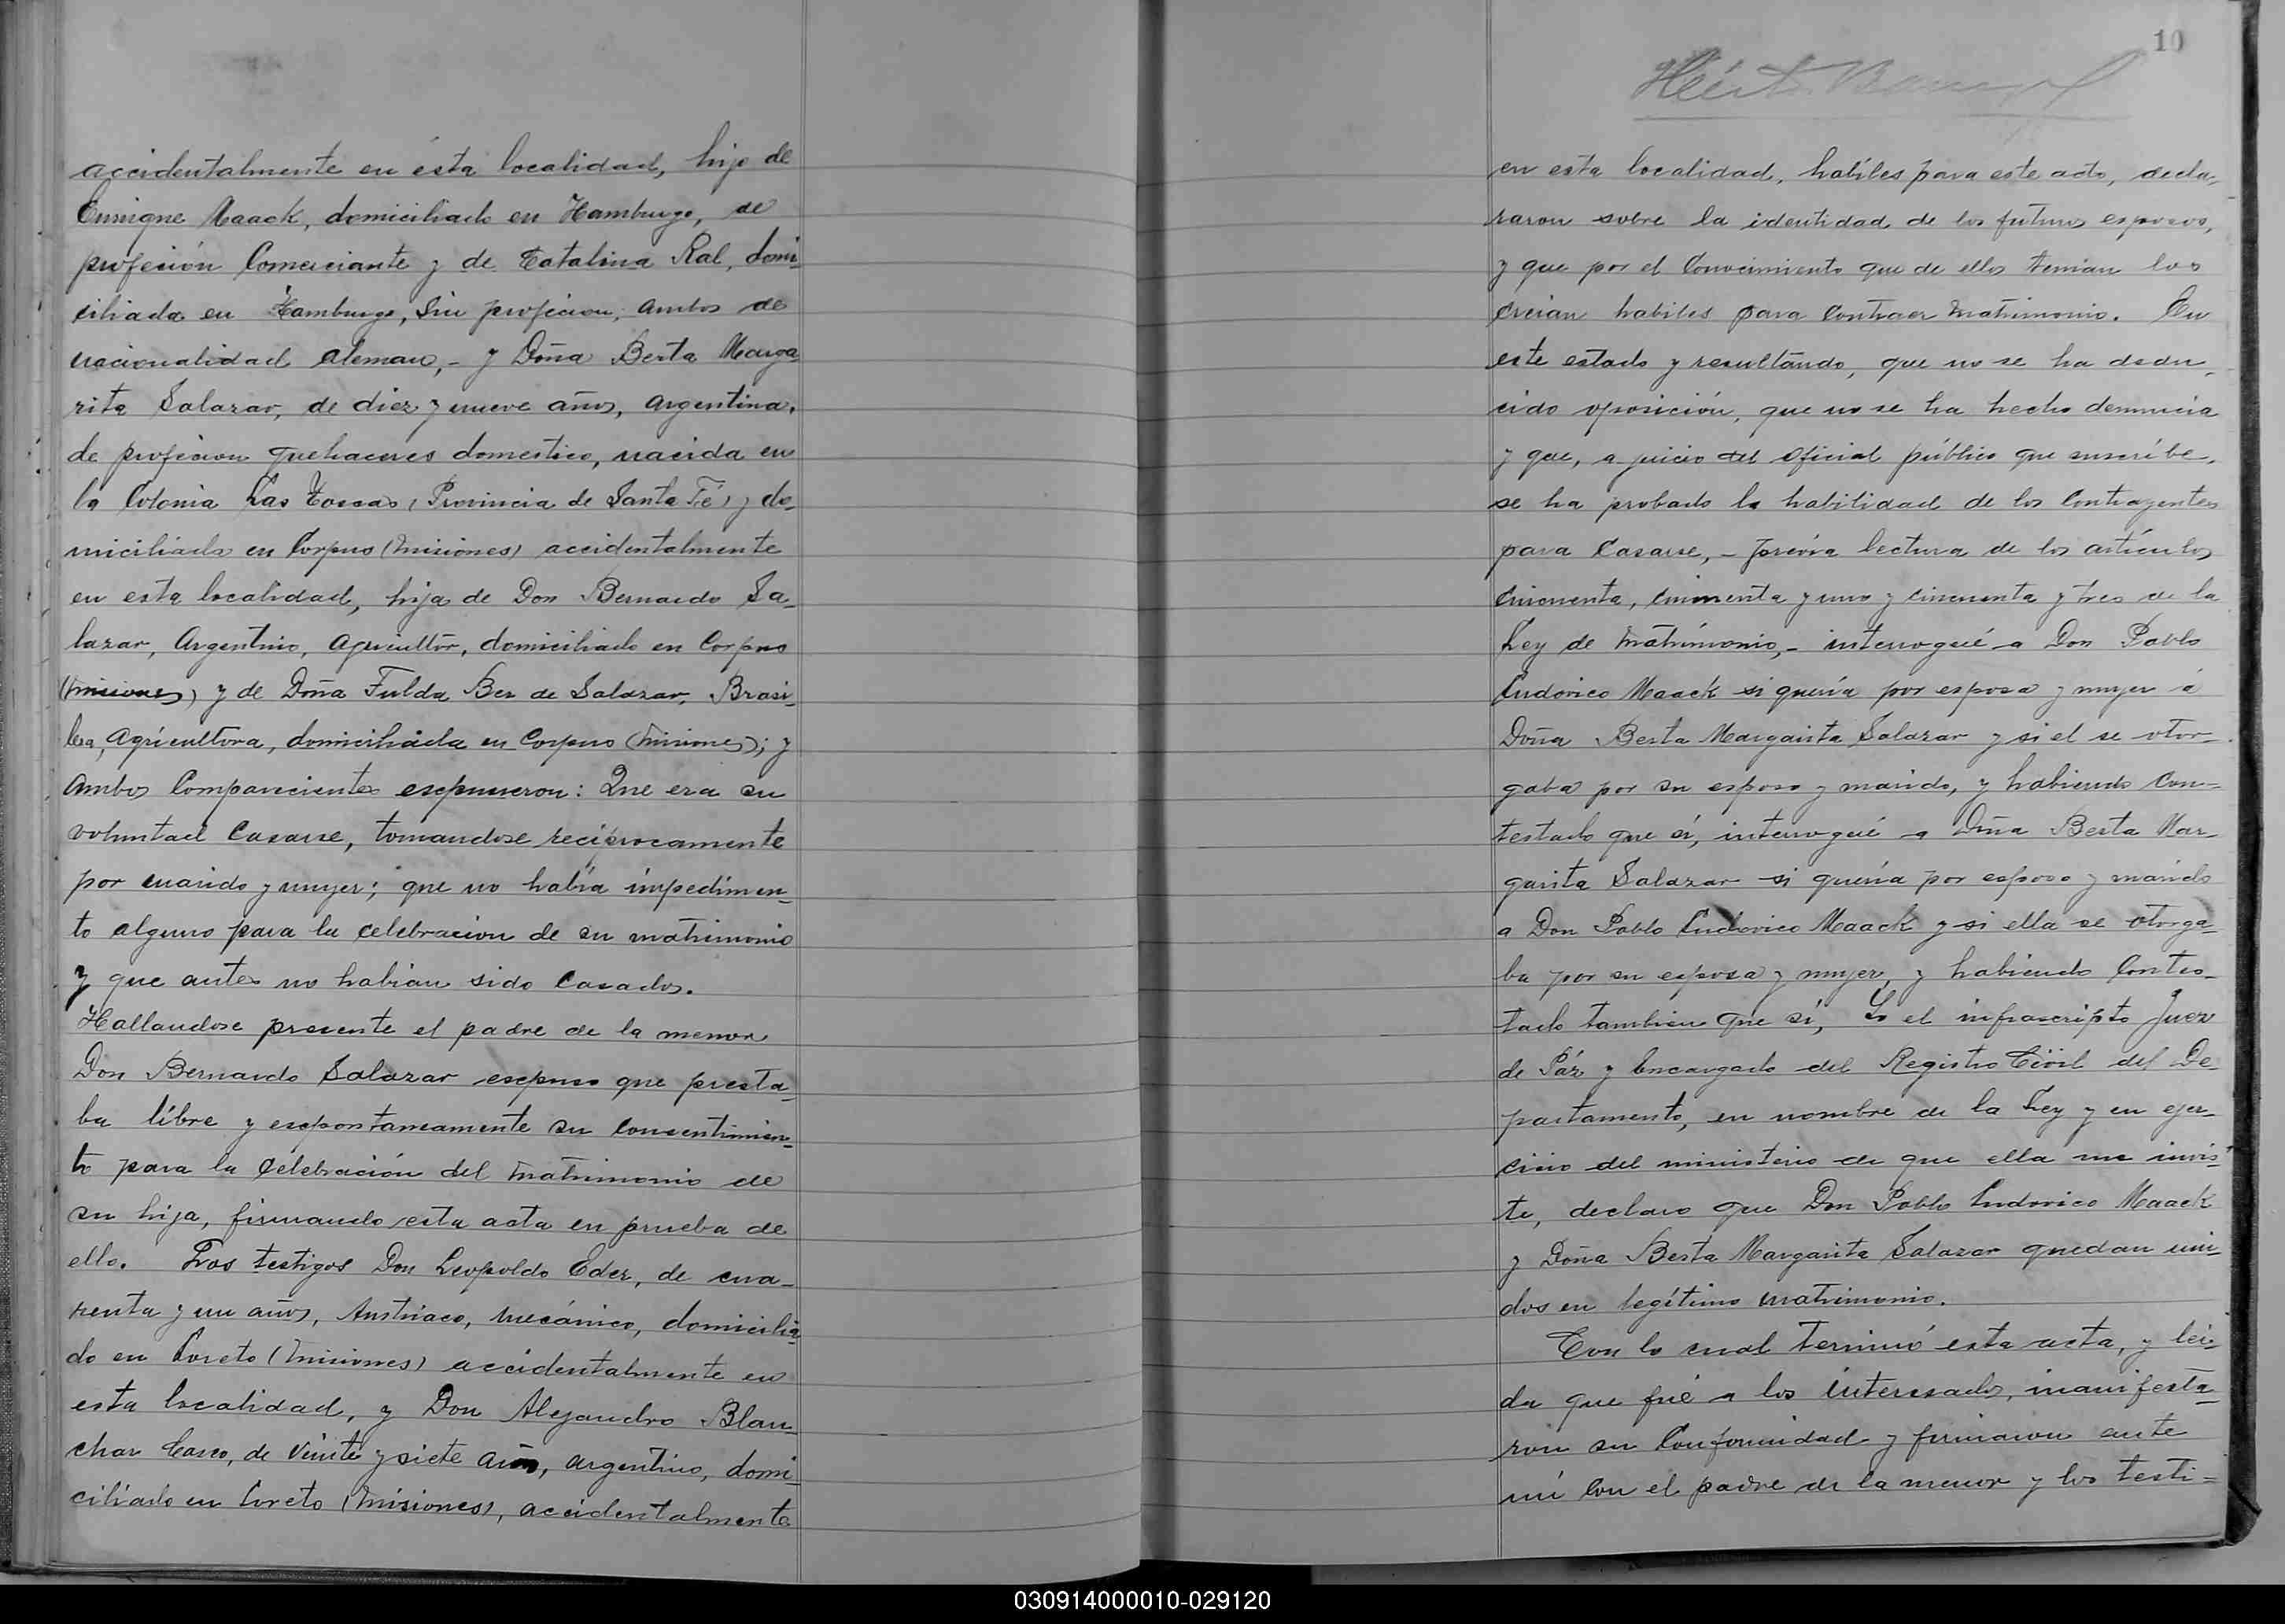 accidentalmente en ésta localidad, hijo de
Enrrique Maack, domiciliado en Hamburgo, de
profesión Comerciante y de Catalina Ral, domi-
ciliada en Hamburgo, Sin profecion, ambos de
nacionalidad Aleman,- y Doña Berta Marga-
rita Salazar, de diez y nueve años, Argentina,
de profecion quehaceres domestico, nacida en
la Colonia Las Toscas (Provincia de Santa Fé) y do-
miciliada en Corpus (Misiones) accidentalmente
en esta localidad, hija de Don Bernardo Sa-
lazar, Argentino, Agricultor, domiciliado en Corpus
(Misiones) y de Doña Fulda Ber de Salazar, Brasi-
lera, Agricultora, domiciliada en Corpus (Misiones); y
Ambos Comparecientes espusieron: Que era su
voluntad Casarse, tomandose reciprocamente
por marido y mujer; que no había impedimen-
to alguno para la celebracion de su matrimonio
y que antes no habian sido Casados.
Hallandose presente el padre de la menor
Don Bernardo Salazar espuso que presta-
ba libre y espontaneamente su Consentimien-
to para la Celebración del Matrimonio de
su hija, firmando esta acta en prueba de
ello. Los testigos Don Leopoldo Eder, de cua-
renta y un años, Austriaco, Mecánico, domicilia-
do en Loreto (Misiones) accidentalmente en
esta localidad, y Don Alejandro Blan-
char Casco, de Veinte y siete años, argentino, domi-
ciliado en Loreto (Misiones), accidentalmente
10
en esta localidad, habíles para este acto, decla-
raron sobre la identidad de los futuros esposos,
y que por el Conocimiento que de ellos tenian los
creian habiles para Contraer Matrimonio. En
este estado y resultando, que no se ha dedu-
cido oposición, que no se ha hecho denuncia
y que, a juicio del oficial público que suscríbe,
se ha probado la habilidad de los Contrayentes
para Casarse,- previa lectura de los artículos
Cincuenta, Cincuenta y uno y cincuenta y tres de la
Ley de Matrimonio,- interrogué a Don Pablo
Ludovico Maack si quería por esposa y mujer á
Doña Berta Margarita Salazar y si el se otor-
gaba por su esposo y marido, y habiendo Con-
testado que sí, interrogué a Doña Berta Mar-
garita Salazar si quería por esposo y marido
a Don Pablo Ludovico Maack y si ella se otorga-
ba por su esposa y mujer, y habiendo Contes-
tado tambien que sí, Yo el infrascripto Juez
de Páz y Encargado del Registro Civil del De-
partamento, en nombre de la Ley y en ejer-
cicio del ministerio de que ella me invis-
te, declaro que Don Pablo Ludovico Maack
y Doña Berta Margarita Salazar quedan uni-
dos en legítimo matrimonio.
Con lo cual terminó esta acta, y lei-
da que fué a los interesados, manifesta-
ron su Conformidad y firmaron ante
mí Con el padre de la menor y los testi=
030914000010-029120